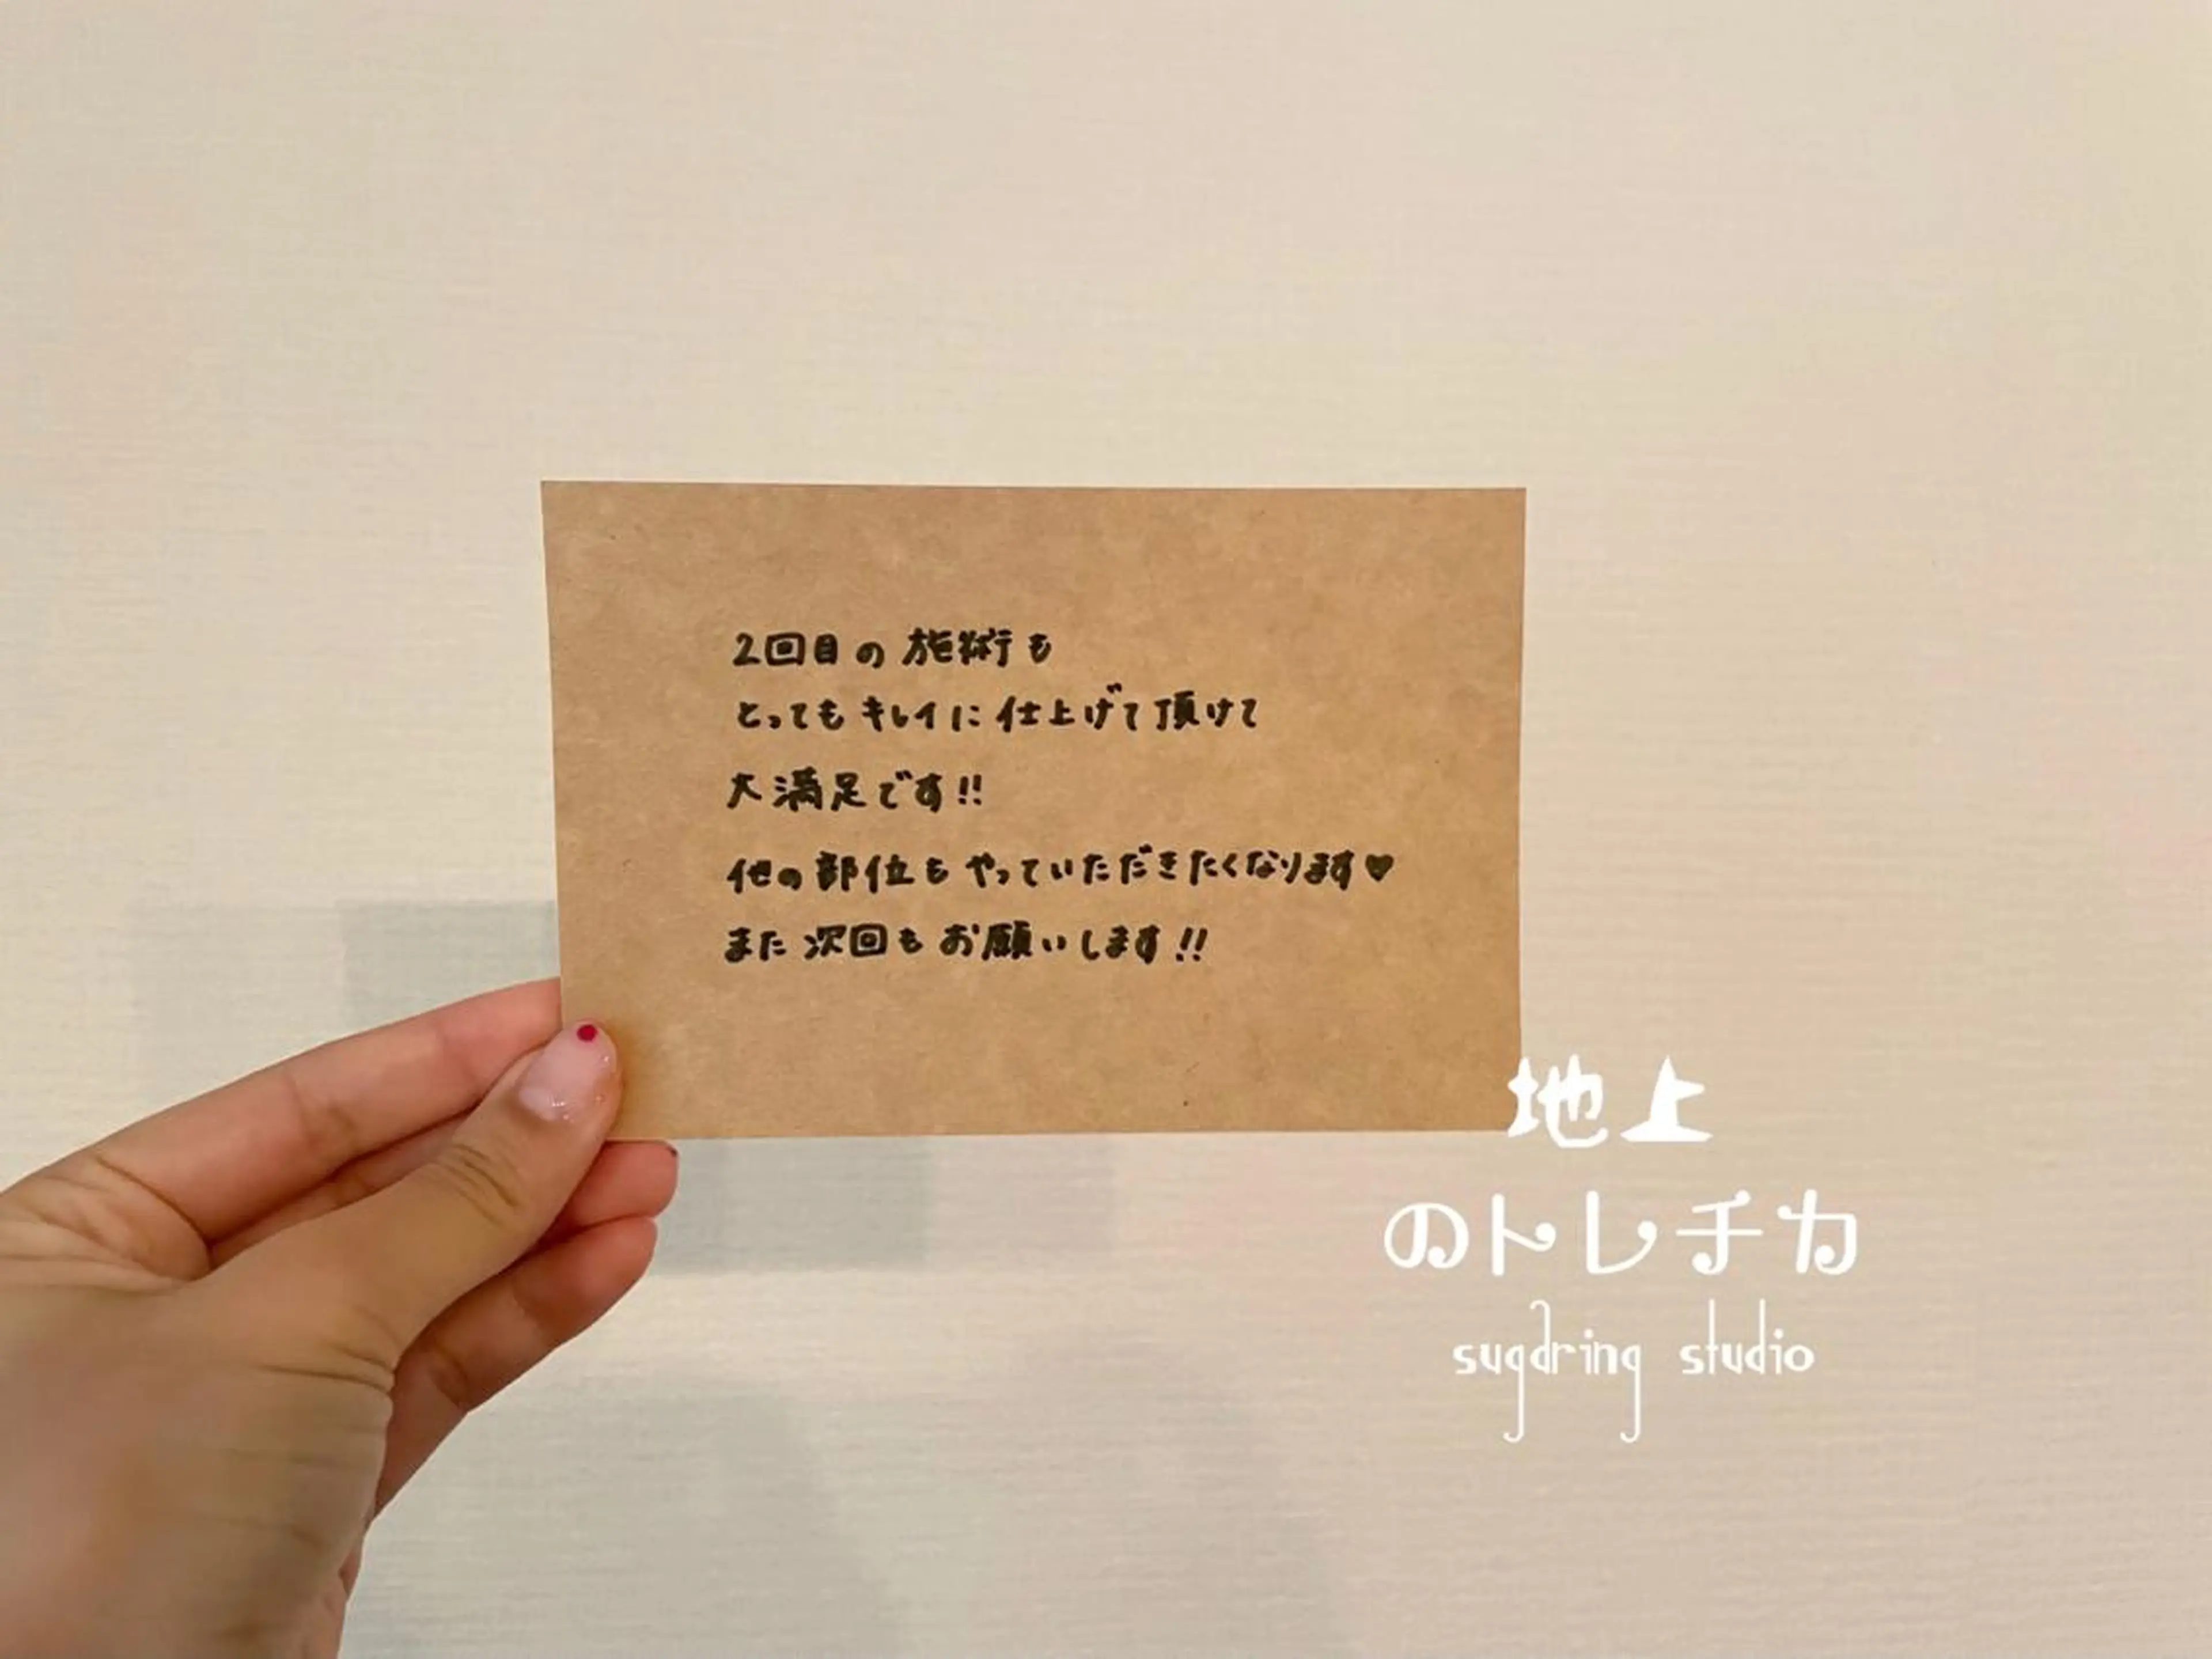 2回目の施術も
とってもキレイに仕上げて頂けて
大満足です!!
他の部位もやっていただきたくなります♥
また次回もお願いします!!
地上
のトレチカ
sugaring studio